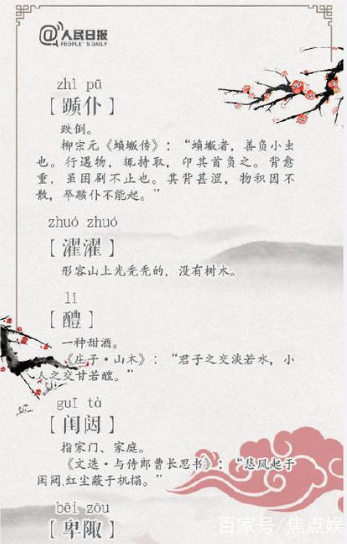 @人民日报
PEOPLE'S DAILY
zhì pū
【踬仆】
跌倒。
柳宗元《蝜蝂传》：“蝜蝂者，善负小虫
也。行遇物，辄持取，卬其首负之。背愈
重，虽困剧不止也。其背甚涩，物积因不
散，卒踬仆不能起。”
zhuó zhuó
【濯濯】
形容山上光秃秃的，没有树木。
lǐ
【醴】
一种甜酒。
《庄子·山木》：“君子之交淡若水，小
人之交甘若醴。”
guī tà
【闺闼】
指家门、家庭。
《文选·与侍郎曹长思书》：“悲风起于
闺闼，红尘蔽于机榻。”
bēi zōu
【卑陬】
百家号/焦点娱